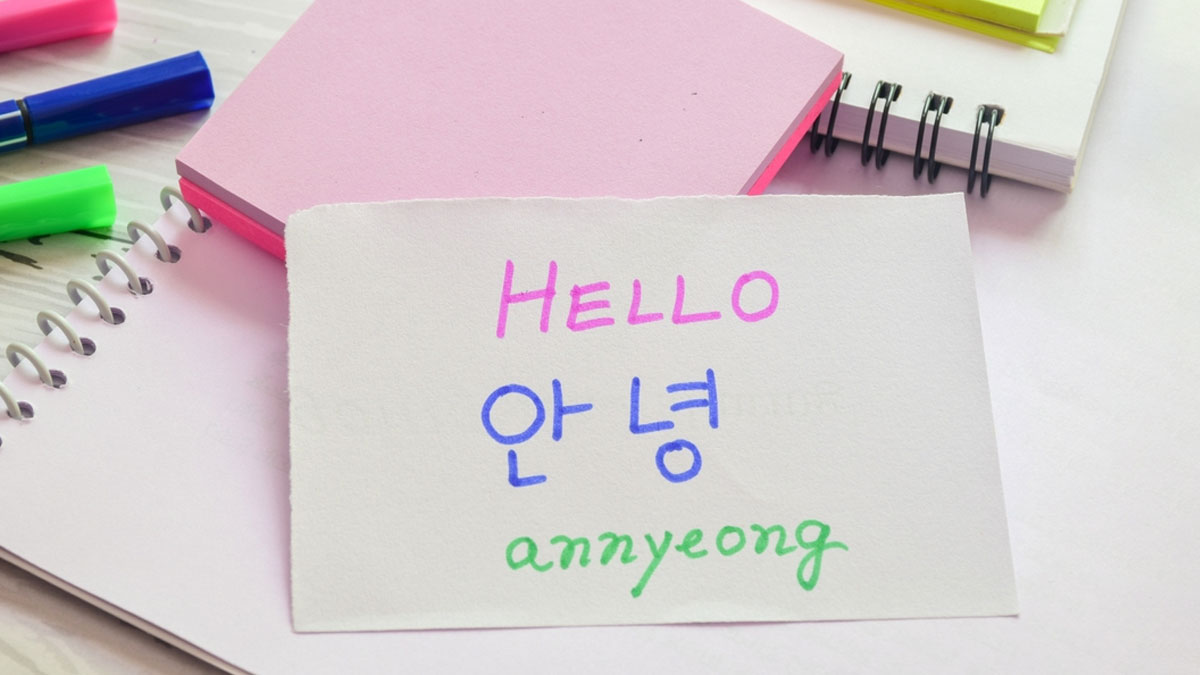 HELLO
안녕
annyeong